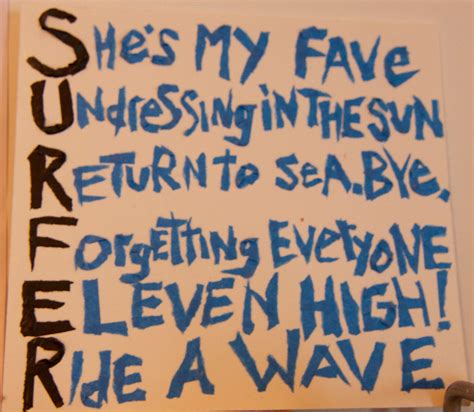 SHE'S MY FAVE
UNdRESSING IN THE SUN
RETURN to SEA. BYE.
FORgETTINg EVERYONE
ELEVEN HIGH!
RIdE A WAVE.